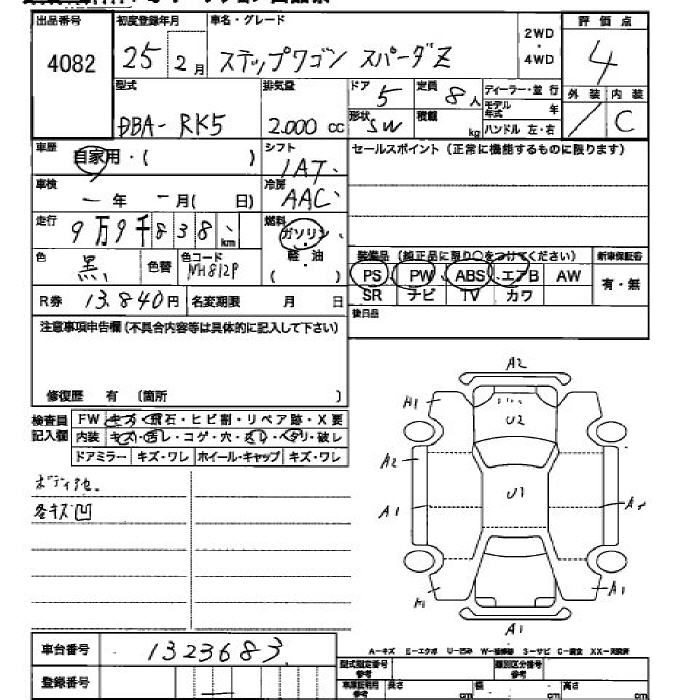 出品番号 初度登録年月 車名・グレード 評価点
4082 25年2月 ステップワゴン スパーダZ 2WD・4WD 4
型式 排気量 ドア 5 定員 8人 ディーラー・並行 外装 内装
DBA-RK5 2.000cc 形状 SW 積載 kg モデル年式 年 C
ハンドル 左・右
車歴 自家用・( ) シフト 1AT セールスポイント(正常に機能するものに限ります)
車検 年 月( 日) 冷房 AAC
走行 9万9千838km 燃料 ガソリン
軽・油
( )
色 黒 色替 色コード NH812P 装備品(純正品に限り○をつけてください) 新車保証書
PS PW ABS エアB AW 有・無
R券 13.840円 名変期限 月 日 SR ナビ TV カワ
後日品
注意事項申告欄(不具合内容等は具体的に記入して下さい)
修復歴 有 (箇所 )
検査員記入欄 FW キズ・飛石・ヒビ割・リペア跡・X要
内装 キズ・汚レ・コゲ・穴・スレ・ヘタリ・破レ
ドアミラー キズ・ワレ ホイール・キャップ キズ・ワレ
各キズ凹
A2
A1 U2
A2
A1 U1
A1
A1
車台番号 1323683
登録番号
A-キズ E-エクボ U-凹み W-補修跡 S-サビ C-腐食 XX-交換済
型式指定番号 参考 類別区分番号 参考
車庫証明用 参考 長さ cm 幅 cm 高さ cm